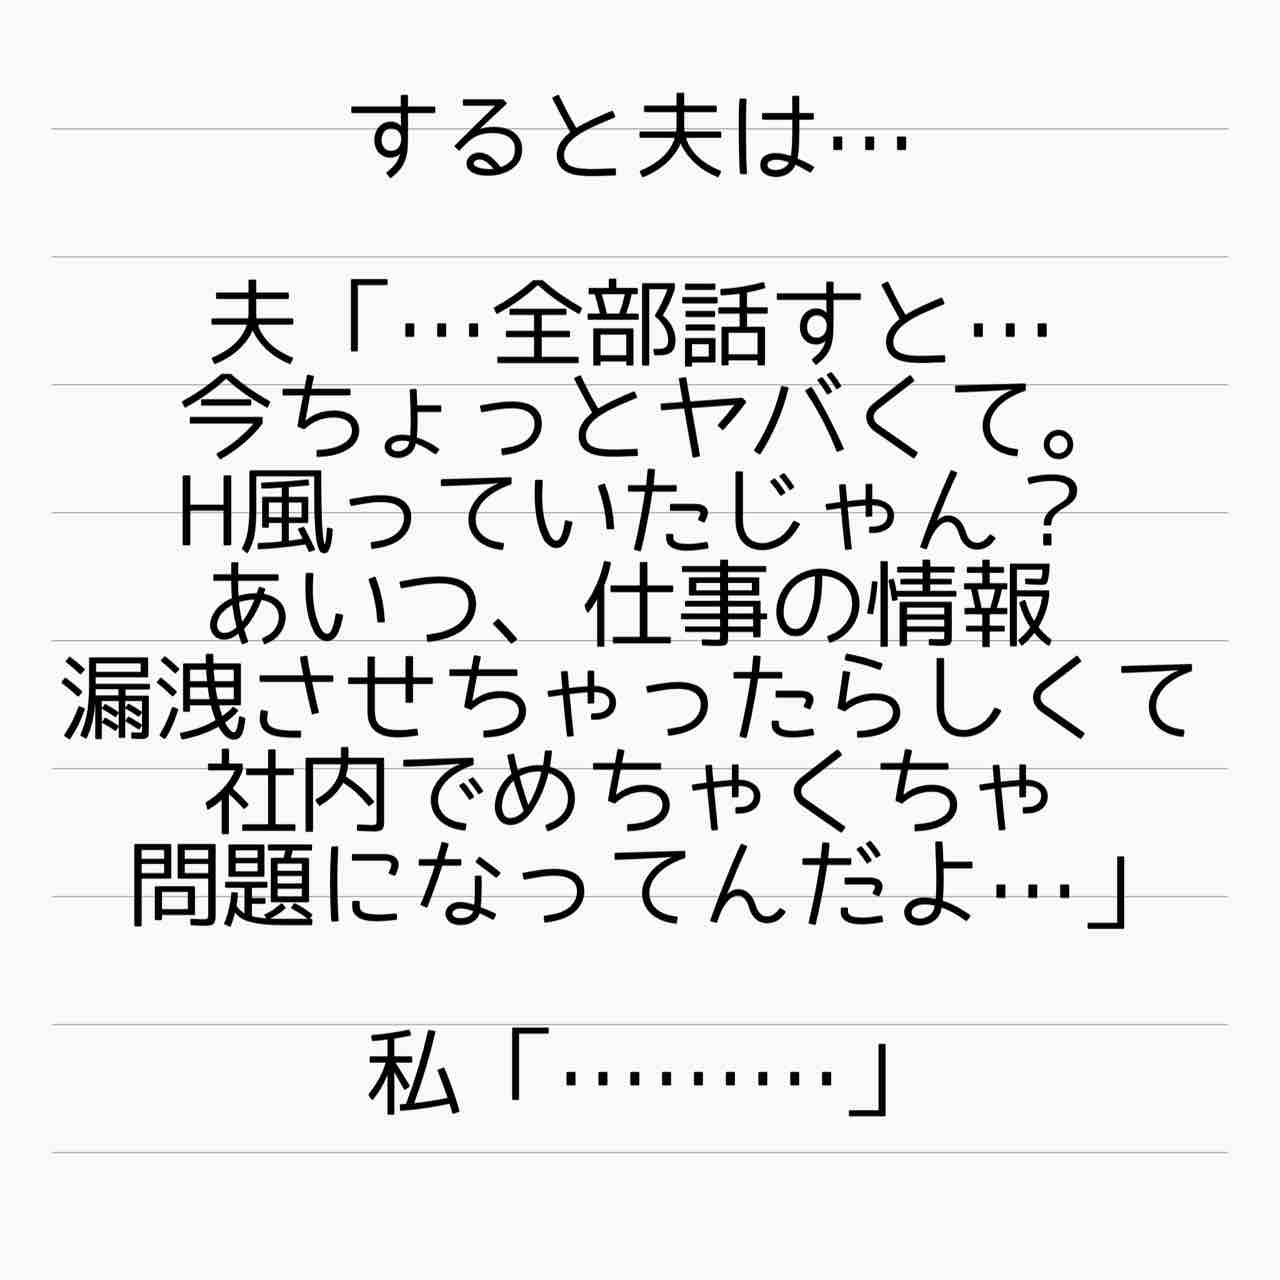 すると夫は…
夫「…全部話すと…
今ちょっとヤバくて。
H風っていたじゃん？
あいつ、仕事の情報
漏洩させちゃったらしくて
社内でめちゃくちゃ
問題になってんだよ…」
私「………」